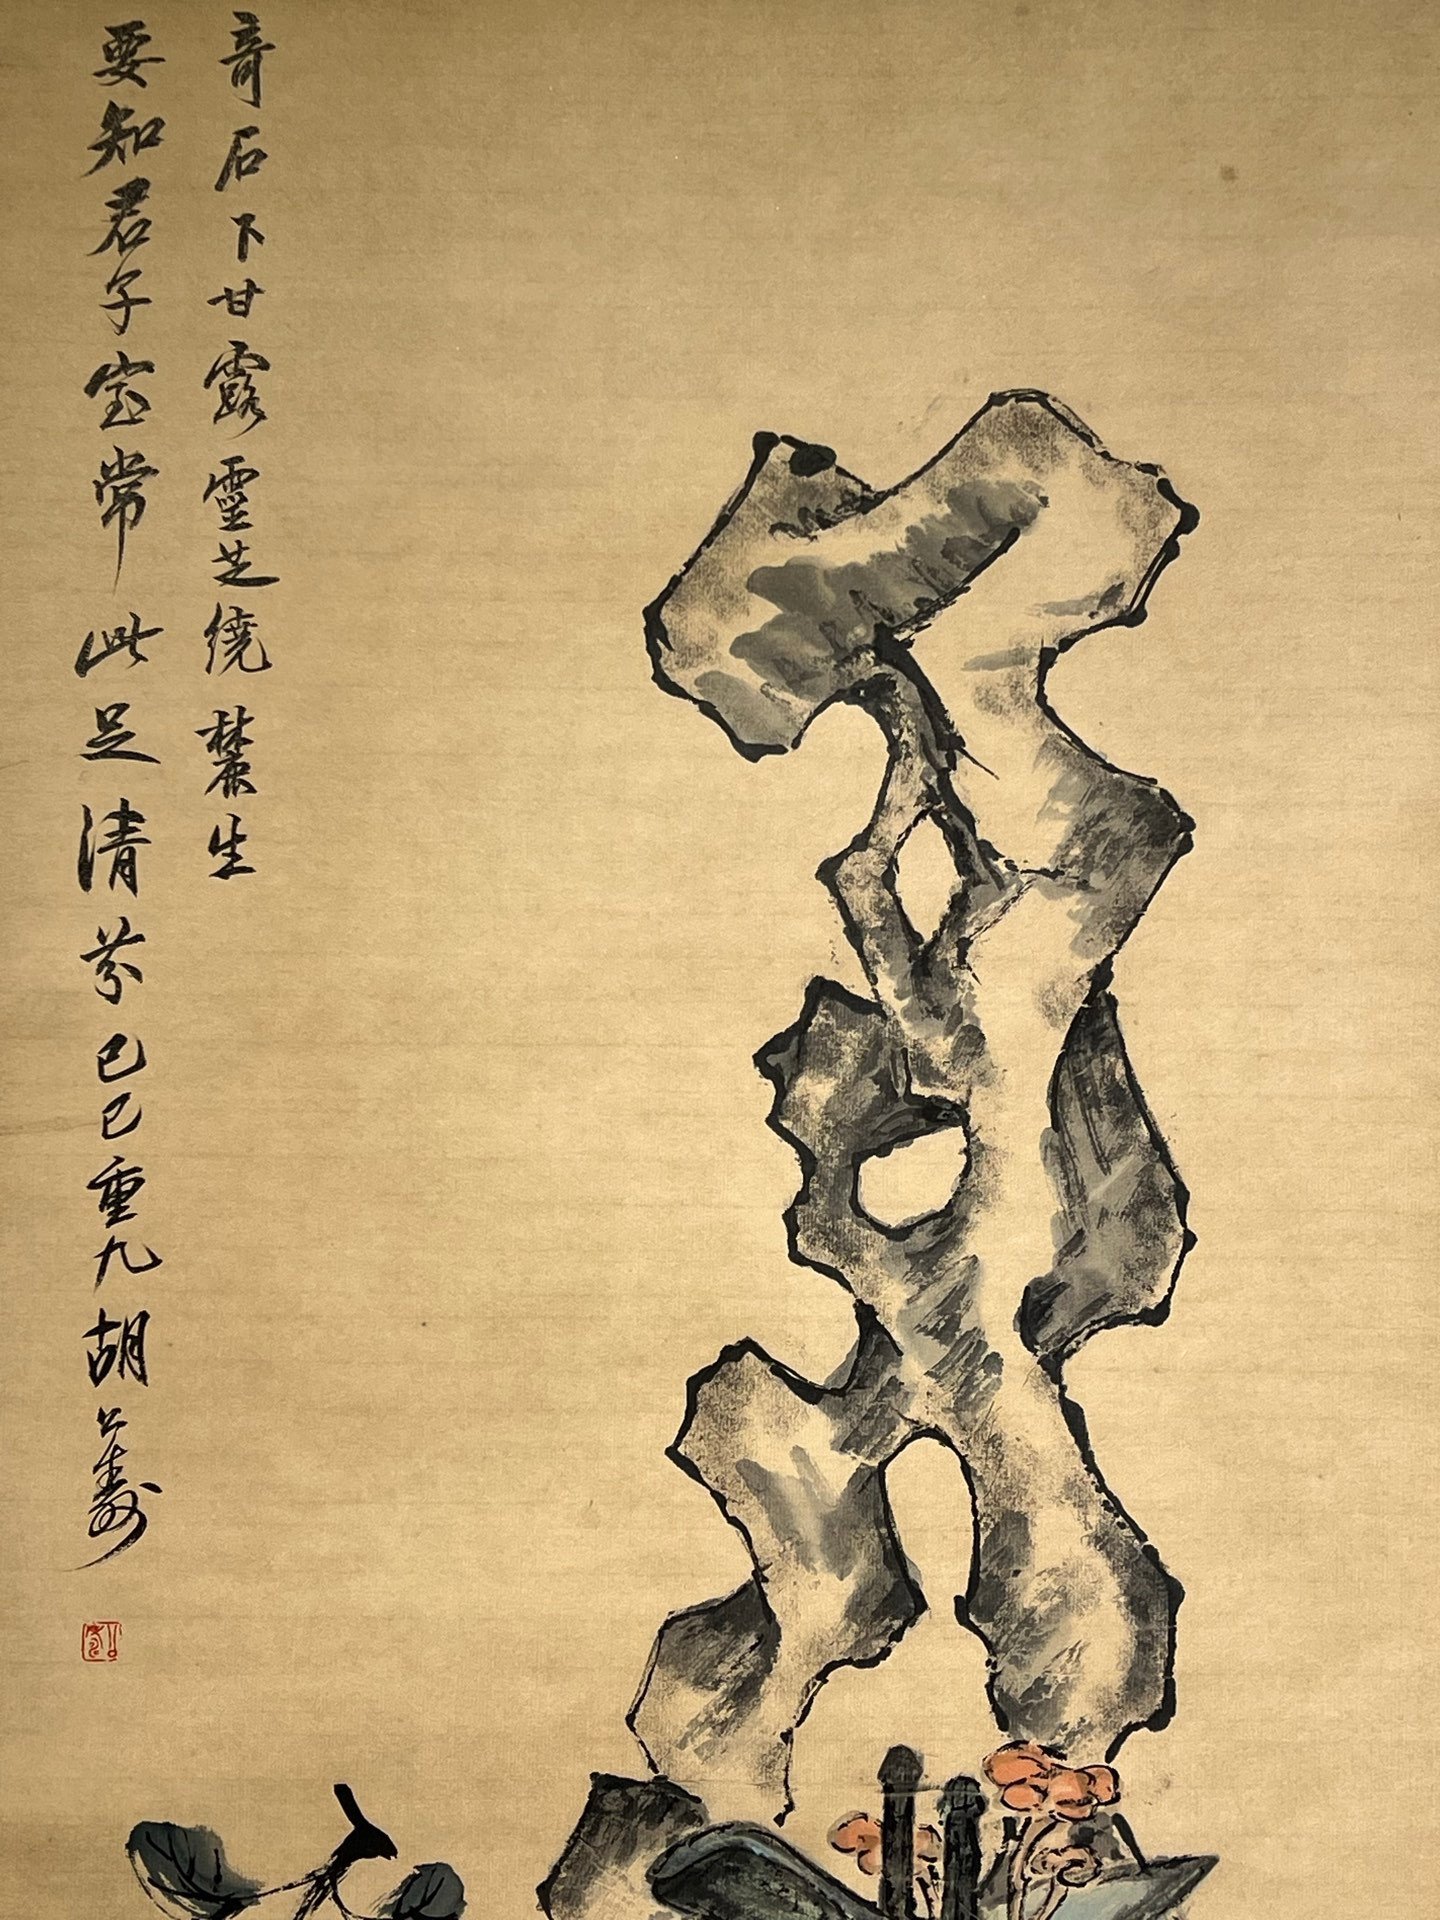 奇石下甘露靈芝繞麓生
要知君子室常此足清芬己巳重九胡公壽